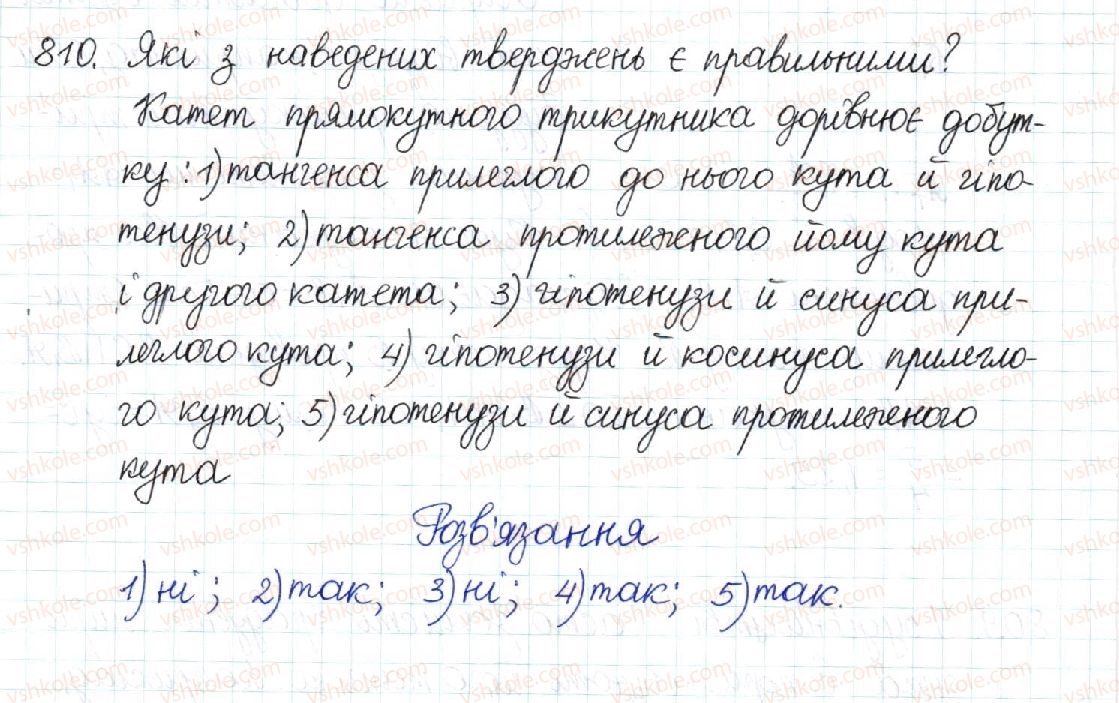 810. Які з наведених тверджень є правильними?
Катет прямокутного трикутника дорівнює добут-
ку: 1) тангенса прилеглого до нього кута й гіпо-
тенузи; 2) тангенса протилежного йому кута
і другого катета; 3) гіпотенузи й синуса при-
леглого кута; 4) гіпотенузи й косинуса прилегло-
го кута; 5) гіпотенузи й синуса протилежного
кута
Розв'язання
1) ні; 2) так; 3) ні; 4) так; 5) так.